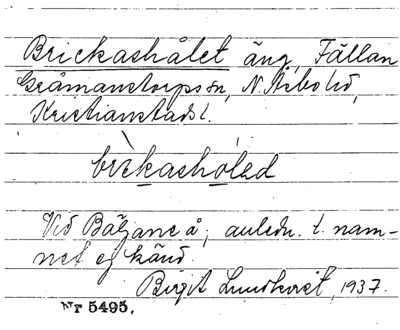 Brickashålet äng, Fällan
Gråmanstorps sn, N. Åsbo hd,
Kristianstads l.
brikasholəd
Vid Bäljane å; anledn. t. nam-
net ej känd.
Birgit Lundkvist, 1937.
Nr 5495.